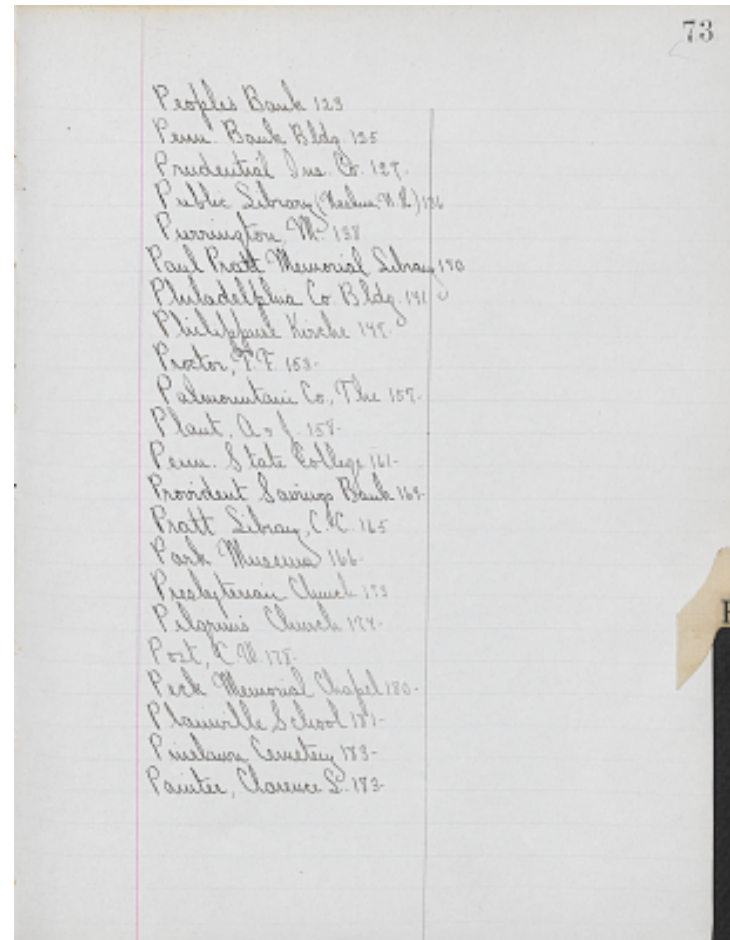 73
Peoples Bank 123
Penn. Bank Bldg. 125
Prudential Ins. Co. 127.
Public Library (Nashua, N.H.) 136
Purrington, M. 138
Paul Pratt Memorial Library 140
Philadelphia Co. Bldg. 141
Philippus Kirche 149.
Proctor, F.F. 153-
Palmountain Co., The 157-
Plant, A. 158-
Penn. State College 161-
Provident Savings Bank 164-
Pratt Library, C.C. 165
Park Museum 166-
Presbyterian Church 173
Pilgrims Church 174-
Post, C.W. 178-
Peck Memorial Chapel 180-
Plainville School 181-
Pinelawn Cemetery 183-
Painter, Clarence S. 183-